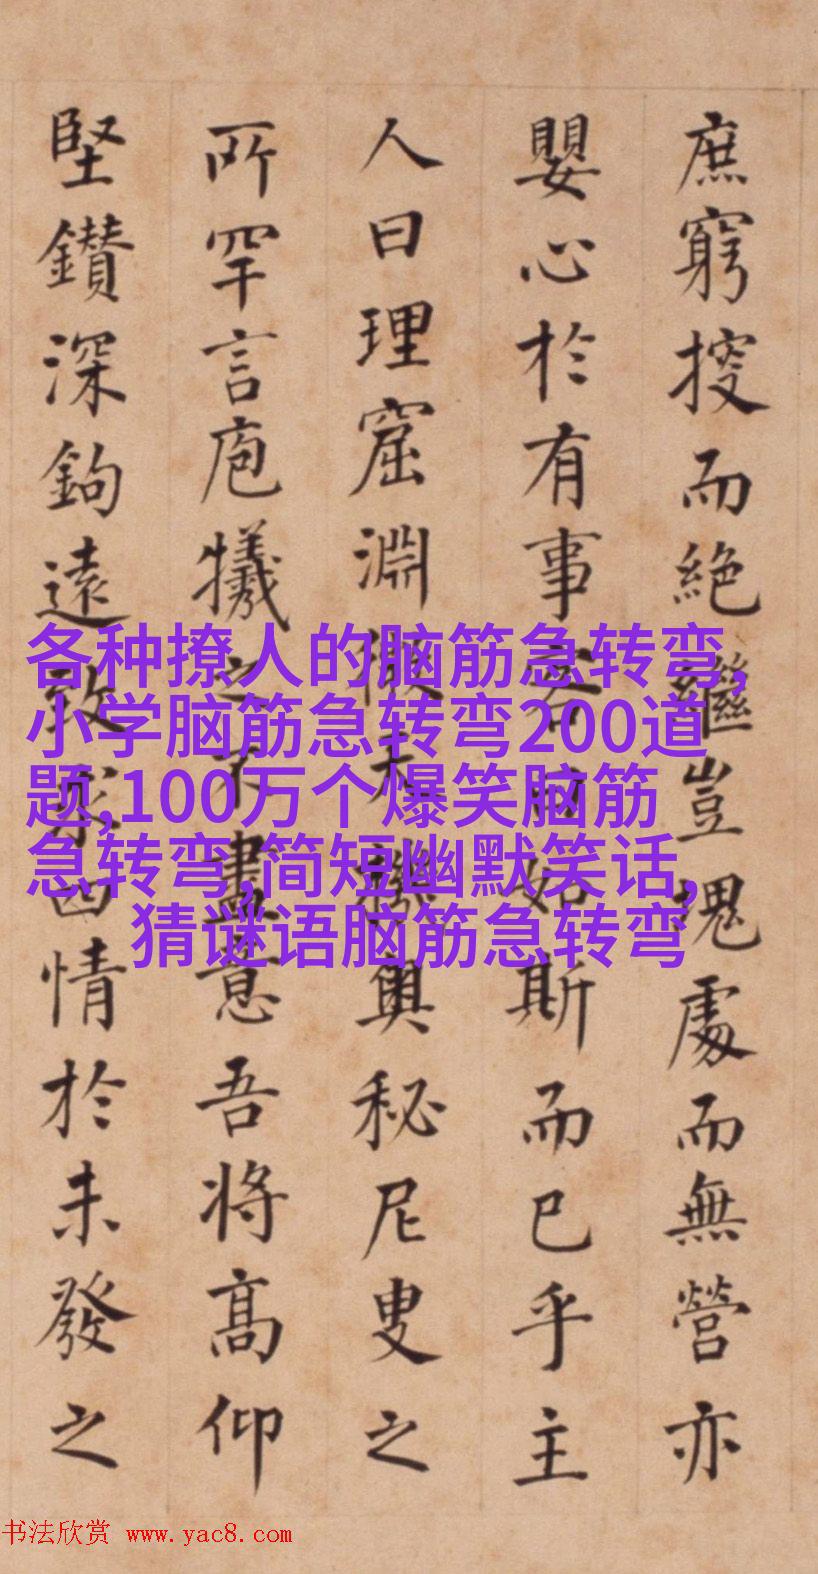 庶窮搜而絕繼豈塊處而無營亦
嬰心於有事客曰如斯而已乎主
人曰理窟淵微未奧秘尼叟之
所罕言庖犧之不盡意吾将高仰
堅鑽深鉤遠致四情於未發之
各种撩人的脑筋急转弯,
小学脑筋急转弯200道
题,100万个爆笑脑筋
急转弯,简短幽默笑话,
猜谜语脑筋急转弯
书法欣赏 www.yac8.com